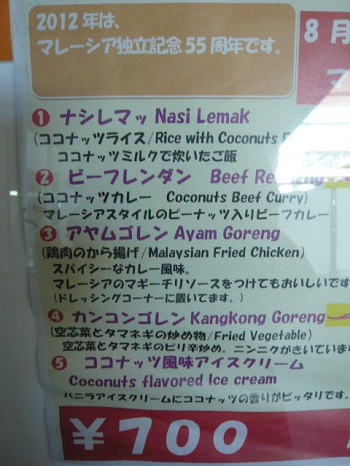 2012年は、
マレーシア独立記念55周年です。
8月
① ナシレマッ Nasi Lemak
(ココナッツライス/Rice with Coconuts
ココナッツミルクで炊いたご飯
② ビーフレンダン Beef
(ココナッツカレー Coconuts Beef Curry)
マレーシアスタイルのピーナッツ入りビーフカレー
③ アヤムゴレン Ayam Goreng
(鶏肉のから揚げ/Malaysian Fried Chicken)
スパイシーなカレー風味。
マレーシアのマギーチリソースをつけてもおいしいです
(ドレッシングコーナーに置いてます。)
④ カンコンゴレン Kangkong Goreng
(空芯菜とタマネギの炒め物/Fried Vegetable)
空芯菜とタマネギのピリ辛炒め。ニンニクがきいていま
⑤ ココナッツ風味アイスクリーム
Coconuts flavored Ice cream
バニラアイスクリームにココナッツの香りがピッタリです。
¥700